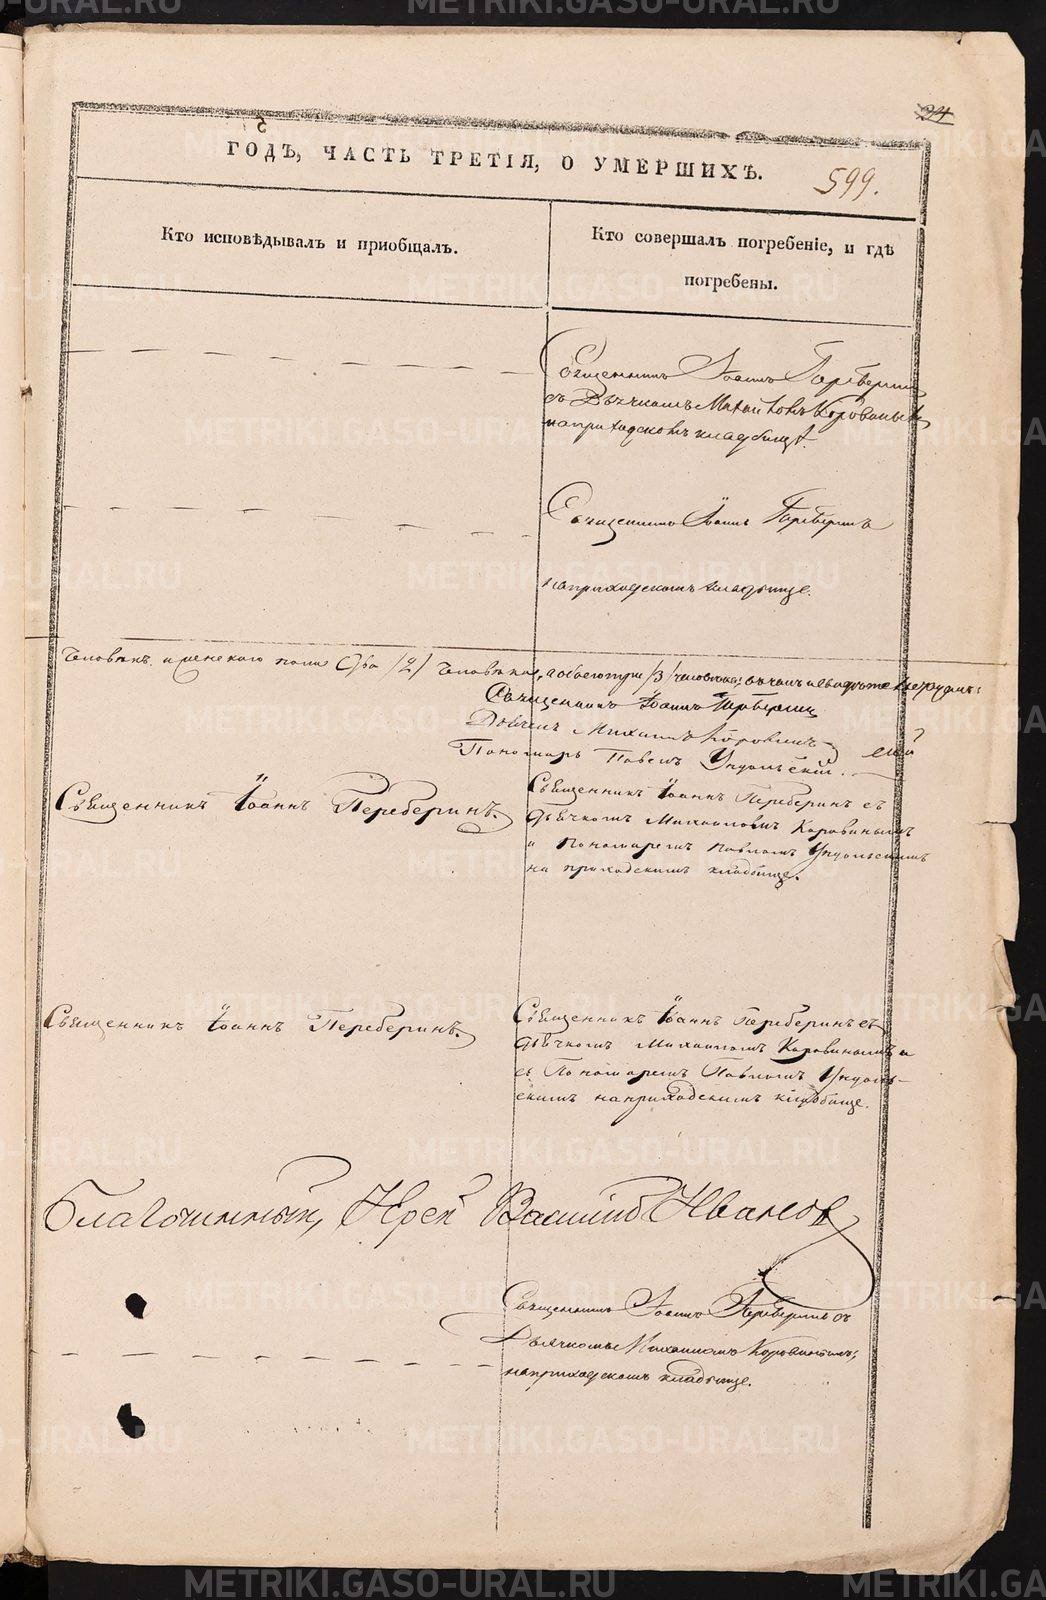 24
5
ГОДЪ, ЧАСТЬ ТРЕТІЯ, О УМЕРШИХЪ.
599.
Кто исповѣдывалъ и пріобщалъ.
Кто совершалъ погребеніе, и гдѣ
погребены.
Священникъ Іоаннъ Переберинъ
съ Дьячкомъ Михаиломъ Коровинымъ
на приходскомъ кладбищѣ.
Священникъ Іоаннъ Переберинъ
на приходскомъ кладбище.
человѣкъ, и женскаго пола два /2/ человѣка, а обоего три /3/ человѣка;
Священникъ Іоаннъ Переберинъ
Дьячекъ Михаилъ Коровинъ
Пономарь Павелъ Ундольскій.
Священникъ Іоаннъ Переберинъ.
Священникъ Іоаннъ Переберинъ съ
дьячкомъ Михаиломъ Коровинымъ
и пономаремъ Павломъ Ундольскимъ
на приходскимъ кладбище.
Священникъ Іоаннъ Переберинъ.
Священникъ Іоаннъ Переберинъ съ
дьячкомъ Михаиломъ Коровинымъ и
съ Пономаремъ Павломъ Ундоль-
скимъ на приходскимъ кладбище.
Благочинный, Іерей Василій Ивановъ
Священникъ Іоаннъ Переберинъ съ
Дьячкомъ Михаиломъ Коровинымъ,
на приходскомъ кладбище.
METRIKI.GASO-URAL.RU